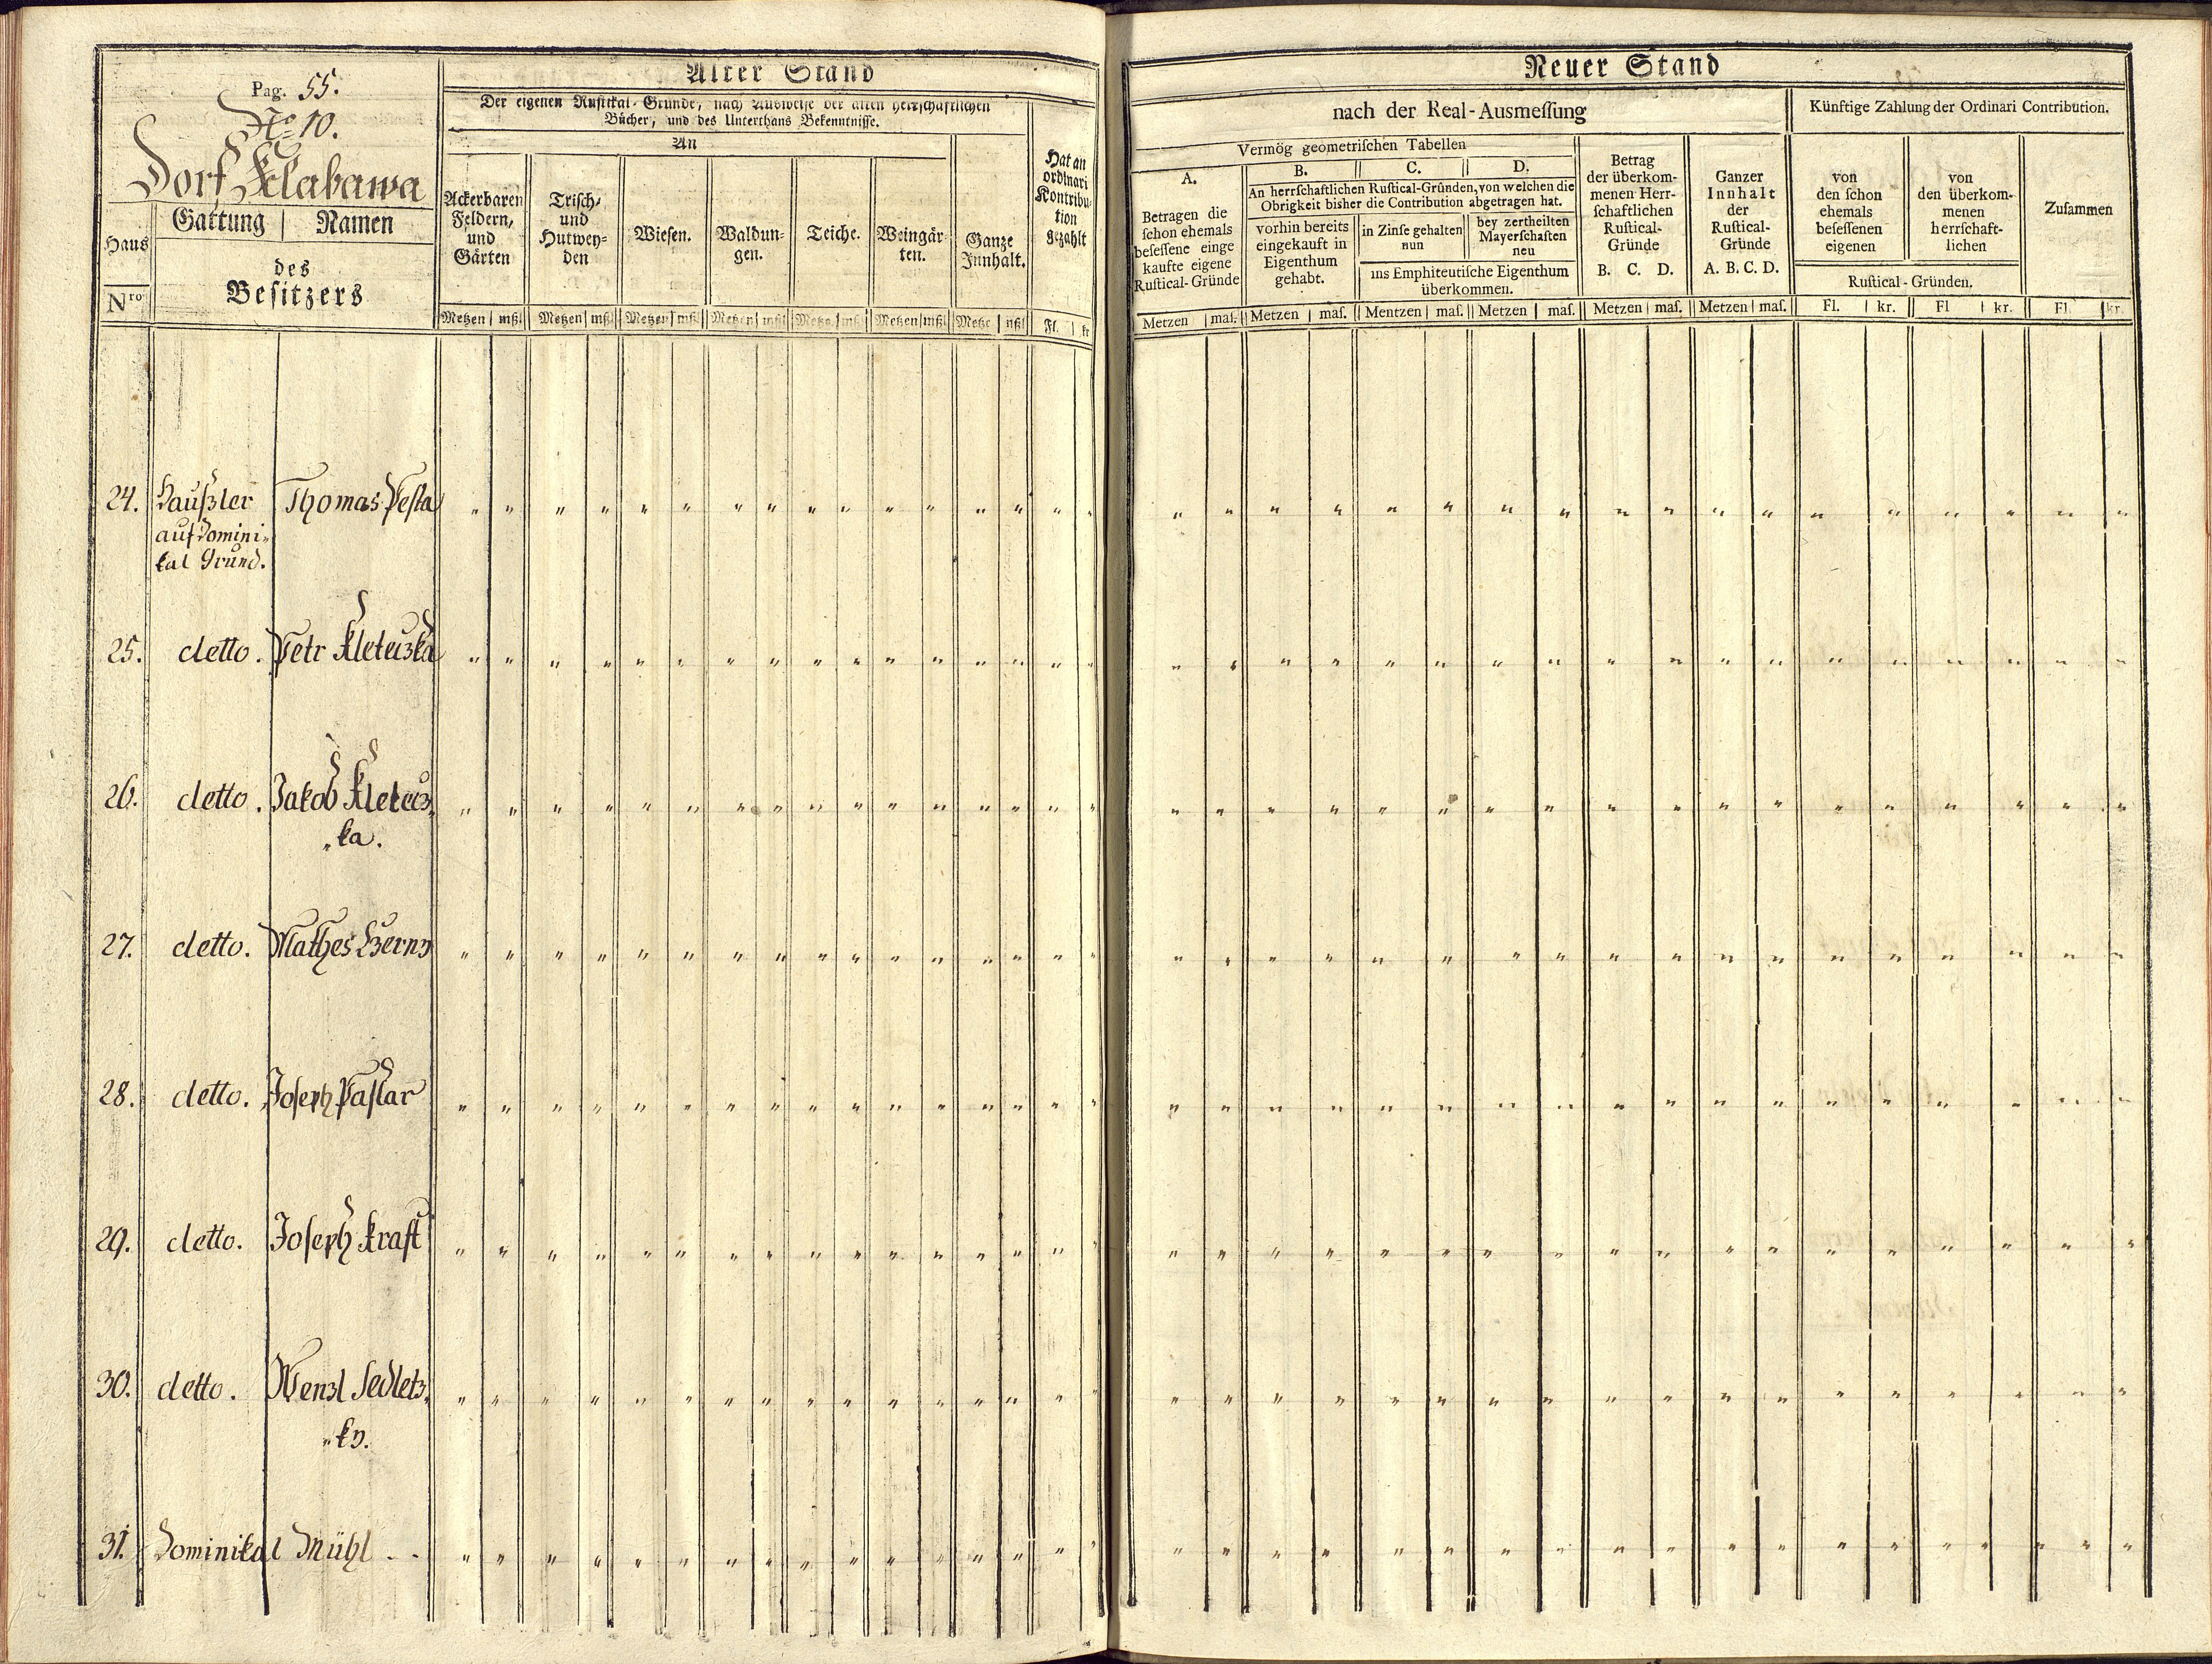 Pag. 55.
No 10.
Dorf Klabawa
Haus
Nro
Gattung | Namen
des
Besitzers
Alter Stand
Der eigenen Rustikal-Gründe, nach Ausweise der alten herrschaftlichen
Bücher, und des Unterthans Bekenntnisse.
An
Ackerbaren
Feldern,
und
Gärten
Trisch-
und
Hutwey-
den
Wiesen.
Waldun-
gen.
Teiche.
Weingär-
ten.
Ganze
Innhalt.
Hat an
ordinari
Kontribu-
tion
gezahlt
Metzen | mßl | Metzen | mßl | Metzen | mßl | Metzen | mßl | Metze | mßl | Metzen | mßl | Metze | mßl | Fl. | kr
Neuer Stand
nach der Real-Ausmeſſung
Künftige Zahlung der Ordinari Contribution.
Vermög geometriſchen Tabellen
A.
Betragen die
ſchon ehemals
beſeſſene einge
kaufte eigene
Ruſtical-Gründe
B. C. D.
An herrſchaftlichen Ruſtical-Gründen, von welchen die
Obrigkeit bisher die Contribution abgetragen hat.
vorhin bereits
eingekauft in
Eigenthum
gehabt.
in Zinſe gehalten
nun
bey zertheilten
Mayerſchaften
neu
ins Emphiteutiſche Eigenthum
überkommen.
Betrag
der überkom-
menen Herr-
ſchaftlichen
Ruſtical-
Gründe
B. C. D.
Ganzer
Innhalt
der
Ruſtical-
Gründe
A. B. C. D.
von
den ſchon
ehemals
beſeſſenen
eigenen
von
den überkom-
menen
herrſchaft-
lichen
Ruſtical-Gründen.
Zuſammen
Metzen | maſ. | Metzen | maſ. | Mentzen | maſ. | Metzen | maſ. | Metzen | maſ. | Metzen | maſ. | Fl. | kr. | Fl | kr. | Fl. | kr.
24. Haußler Thomas Pesta
auf Domini-
kal Grund.
25. detto. Petr Kleteczka
26. detto. Jakob Kletecz-
"ka.
27. detto. Mathes Czerny
28. detto. Joseph Pastar
29. detto. Joseph Kraft
30. detto. Wenzl Sedletz-
"ky.
31. Dominikal Mühl . .